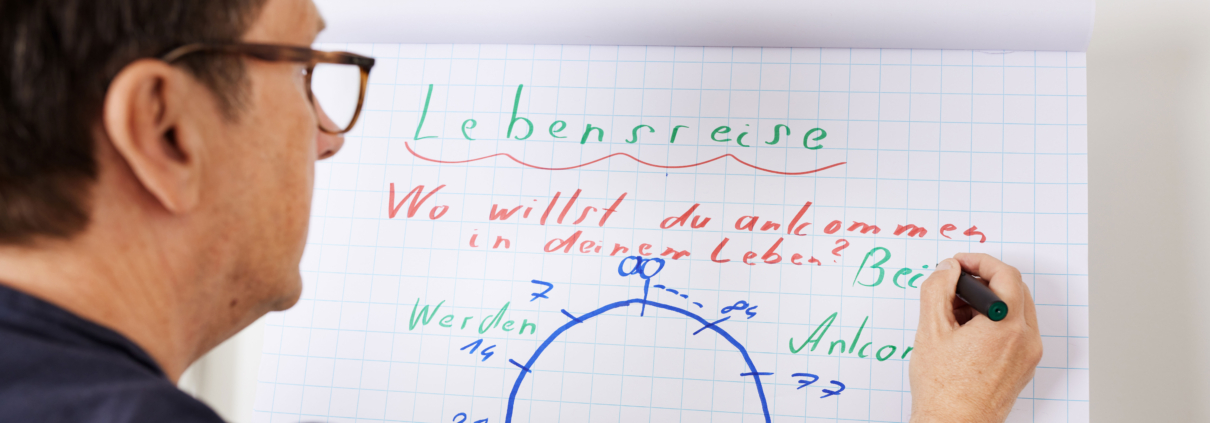 Lebensreise
Wo willst du ankommen
in deinem Leben?
Bei
00
7
84
Werden
Ankom
14
77